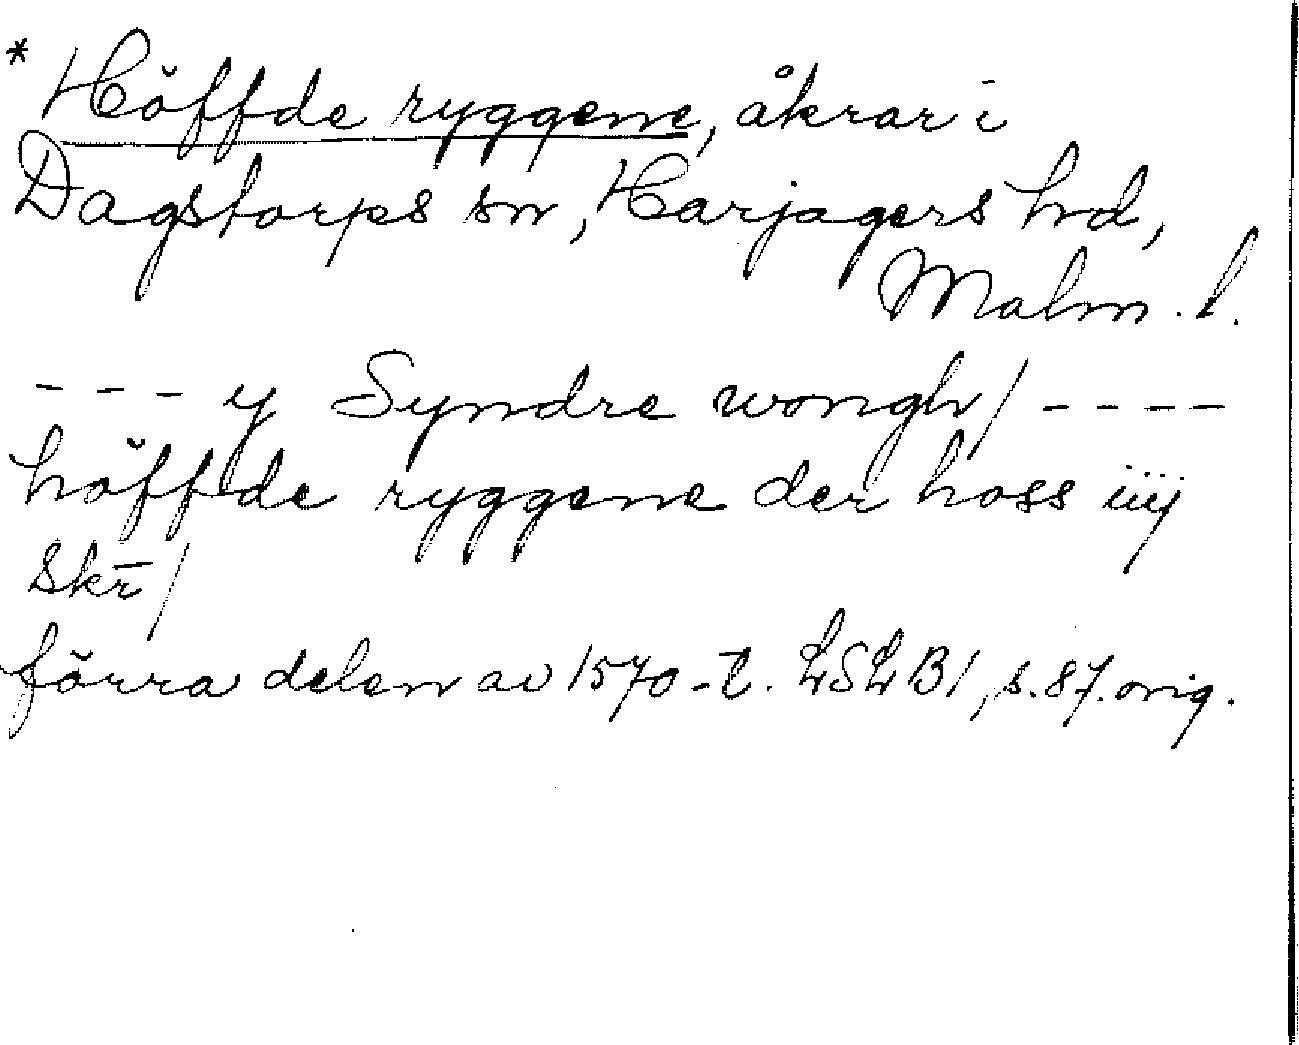 * Höffde ryggene, åkrar i
Dagstorps sn, Harjagers hd,
Malm. l.
- - - y Syndre wongh/ - - - -
höffde ryggene der hoss iiij
skr̄/
förra delen av 1570-t. LSLB1, s. 87. orig.